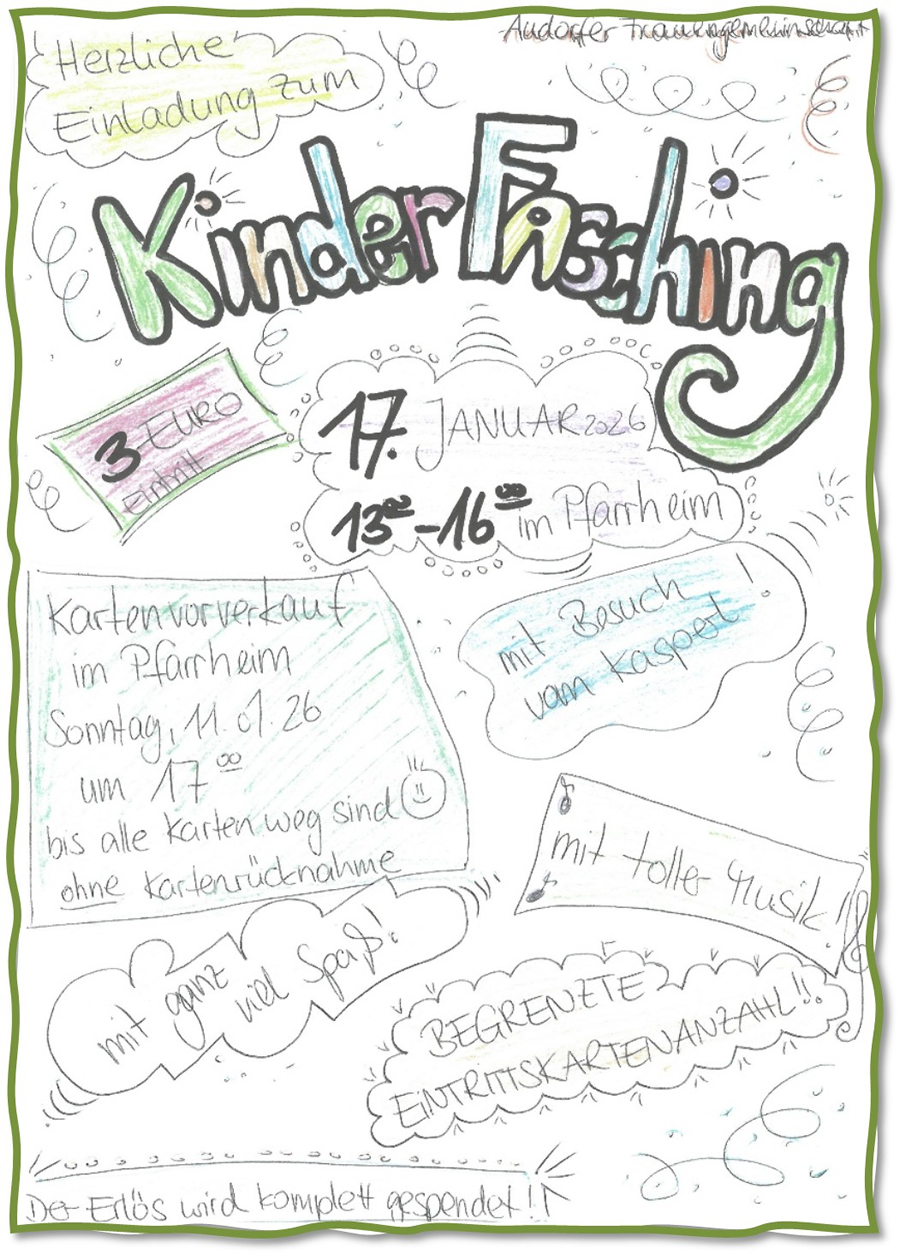 Audorfer Frauengemeinschaft
Herzliche
Einladung zum
Kinder FAsching
3 EURO
eintritt
17. JANUAR 2026
13⁰⁰-16⁰⁰ im Pfarrheim
Kartenvorverkauf
im Pfarrheim
Sonntag, 11.01.26
um 17⁰⁰
bis alle Karten weg sind
ohne Kartenrücknahme
mit Besuch
vom Kasperl!
mit toller Musik!
mit ganz
viel Spaß!
BEGRENZTE
EINTRITTSKARTENANZAHL!!
Der Erlös wird komplett gespendet!!